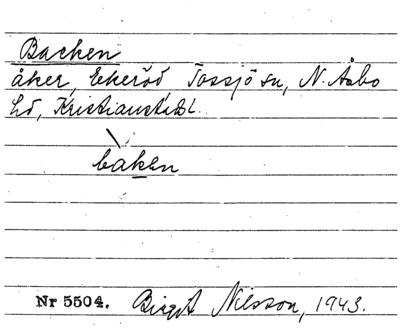 Backen
åker, Ekeröd, Tossjö sn, N. Åsbo
hd, Kristianstads l.
baken
Nr 5504. Birgit Nilsson, 1943.